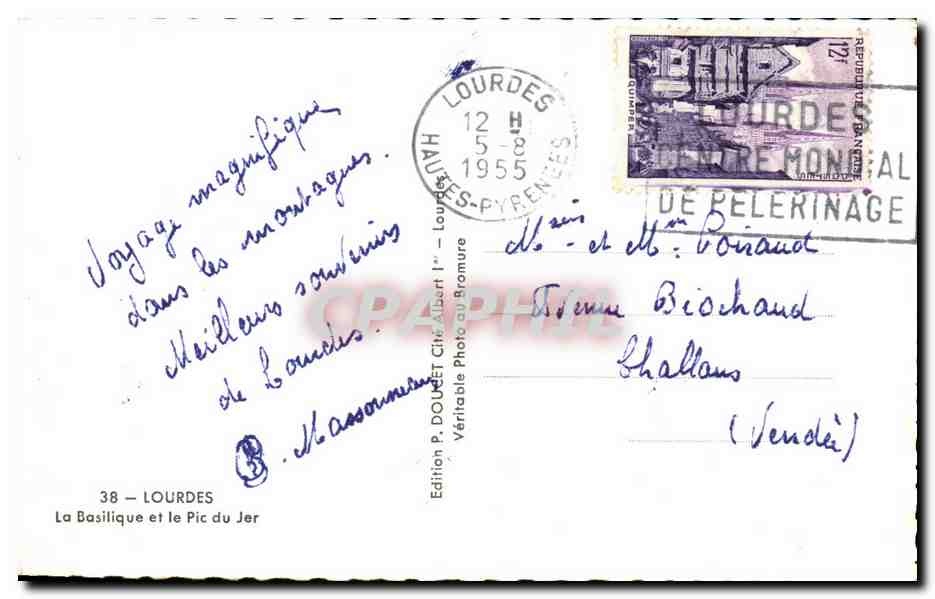 Voyage magnifique
dans les montagnes.
Meilleurs souvenirs
de Lourdes.
B. Massonneau
38 — LOURDES
La Basilique et le Pic du Jer
Edition P. DOUCET Cité Albert 1er — Lourdes
Véritable Photo au Bromure
LOURDES
12 H
5 - 8
1955
HAUTES-PYRENEES
REPUBLIQUE FRANÇAISE
12F
QUIMPER
LOURDES
CENTRE MONDIAL
DE PELERINAGE
et Poiraud
Biochaud
Challans
(Vendée)
CPAPHIL